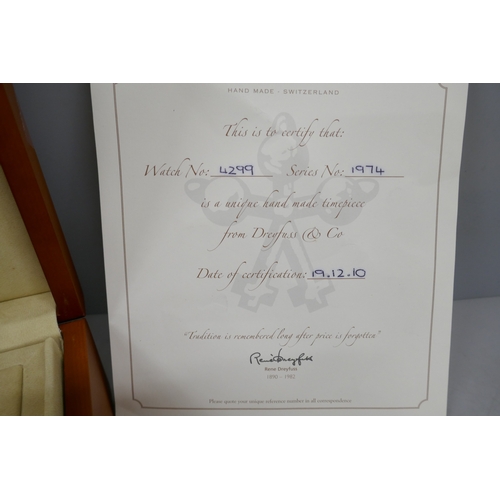 HAND MADE - SWITZERLAND
This is to certify that:
Watch No: 4299 Series No: 1974
is a unique hand made timepiece
from Dreyfuss & Co
Date of certification: 19.12.10
"Tradition is remembered long after price is forgotten"
René Dreyfuss
Rene Dreyfuss
1895 - 1982
Please quote your unique reference number in all correspondence.